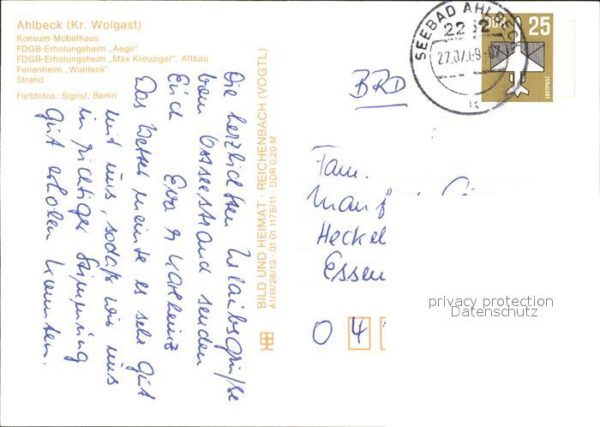 Ahlbeck (Kr. Wolgast)
Konsum-Möbelhaus
FDGB-Erholungsheim „Aegir"
FDGB-Erholungsheim „Max Kreuziger", Altbau
Ferienheim „Waldeck"
Strand
Farbfotos: Sigrist, Berlin
Die herzlichsten Urlaubsgrüße
vom Ostseestrand senden
Euch Eva & Karlheinz
Das Wetter meinte es sehr gut
mit uns, sodaß wir uns
in richtiger Stimmung
gut erholen konnten.
BILD UND HEIMAT · REICHENBACH (VOGTL)
A1/III/26/13 01 01 1175/11 · DDR 0,20 M
SEEBAD AHLBECK
2252
25
LUFTPOST
BRD
Fam.
Manf
Heckel
Essen
privacy protection
Datenschutz
0 4 1